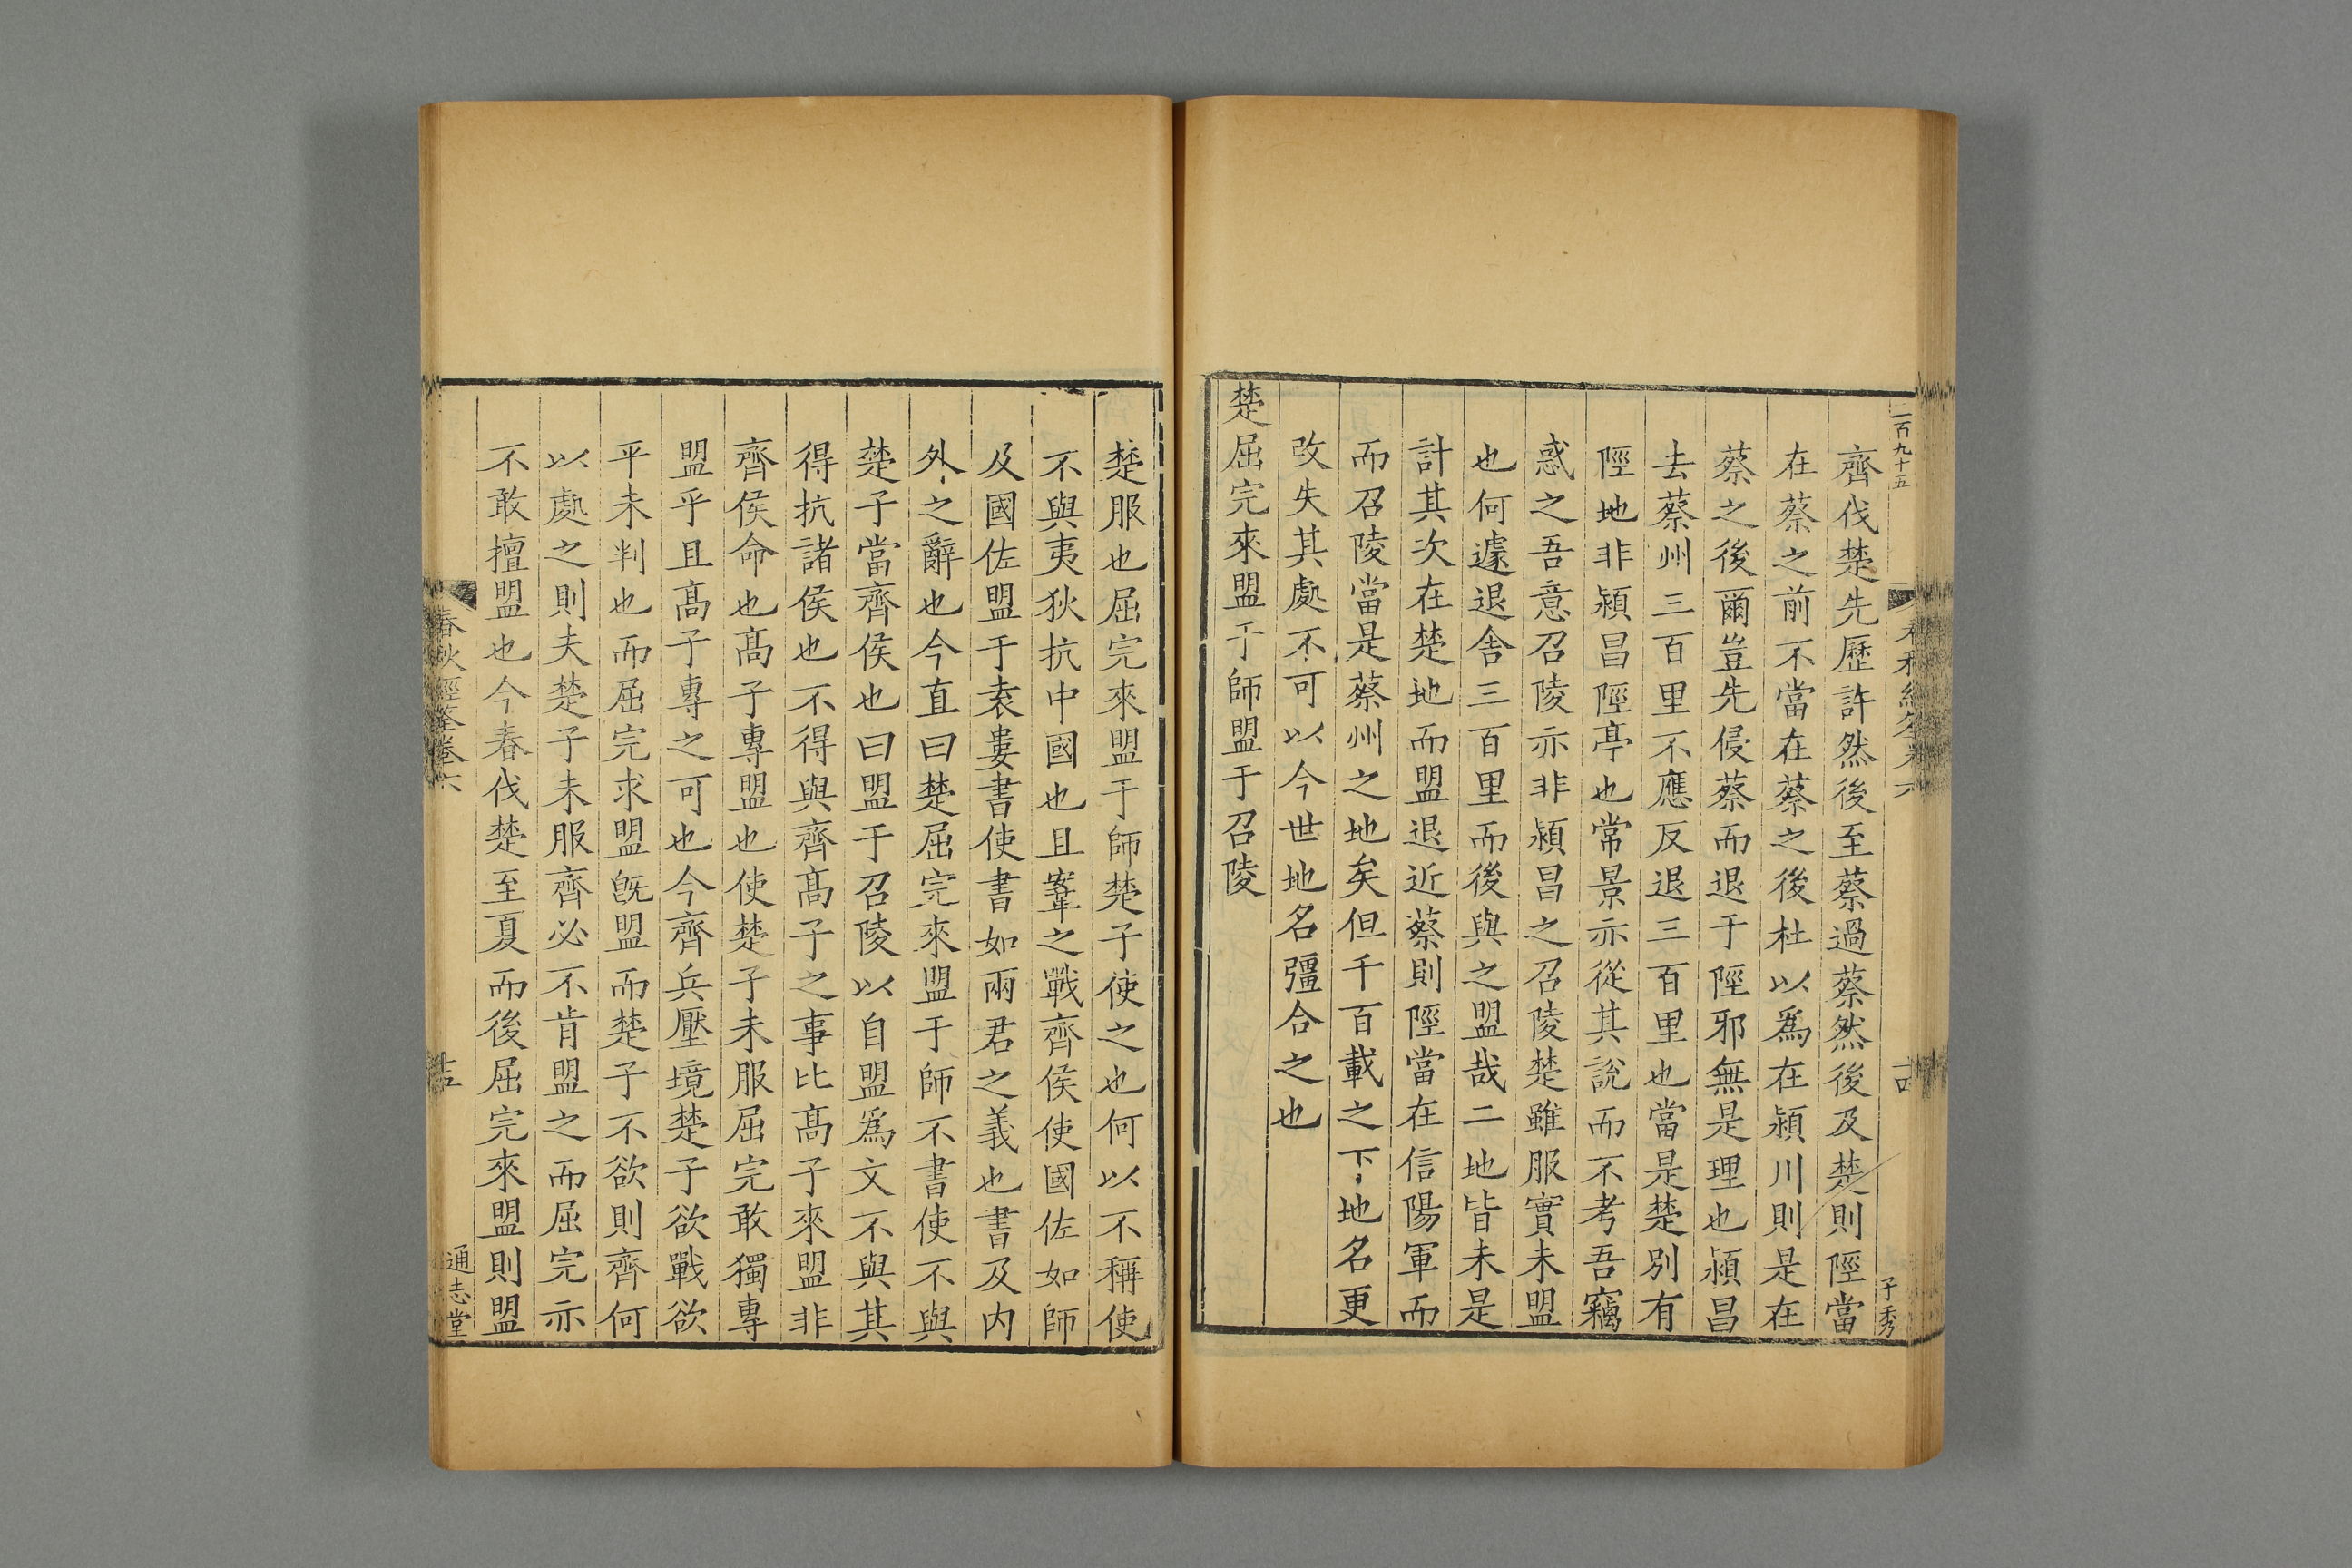 一百九十五
齊伐楚先歷許然後至蔡過蔡然後及楚則陘當
在蔡之前不當在蔡之後杜以爲在潁川則是在
蔡之後爾豈先侵蔡而退于陘邪無是理也潁昌
去蔡州三百里不應反退三百里也當是楚別有
陘地非潁昌陘亭也常景亦從其說而不考吾竊
惑之吾意召陵亦非潁昌之召陵楚雖服實未盟
也何遽退舍三百里而後與之盟哉二地皆未是
計其次在楚地而盟退近蔡則陘當在信陽軍而
而召陵當是蔡州之地矣但千百載之下地名更
改失其處不可以今世地名彊合之也
楚屈完來盟于師盟于召陵
十四
子秀
楚服也屈完來盟于師楚子使之也何以不稱使
不與夷狄抗中國也且鞌之戰齊侯使國佐如師
及國佐盟于袁婁書使書如兩君之義也書及內
外之辭也今直曰楚屈完來盟于師不書使不與
楚子當齊侯也曰盟于召陵以自盟爲文不與其
得抗諸侯也不得與齊髙子之事比髙子來盟非
齊侯命也髙子專盟也使楚子未服屈完敢獨專
盟乎且髙子專之可也今齊兵壓境楚子欲戰欲
平未判也而屈完求盟旣盟而楚子不欲則齊何
以處之則夫楚子未服齊必不肯盟之而屈完亦
不敢擅盟也今春伐楚至夏而後屈完來盟則盟
春秋經筌卷六
十五
通志堂